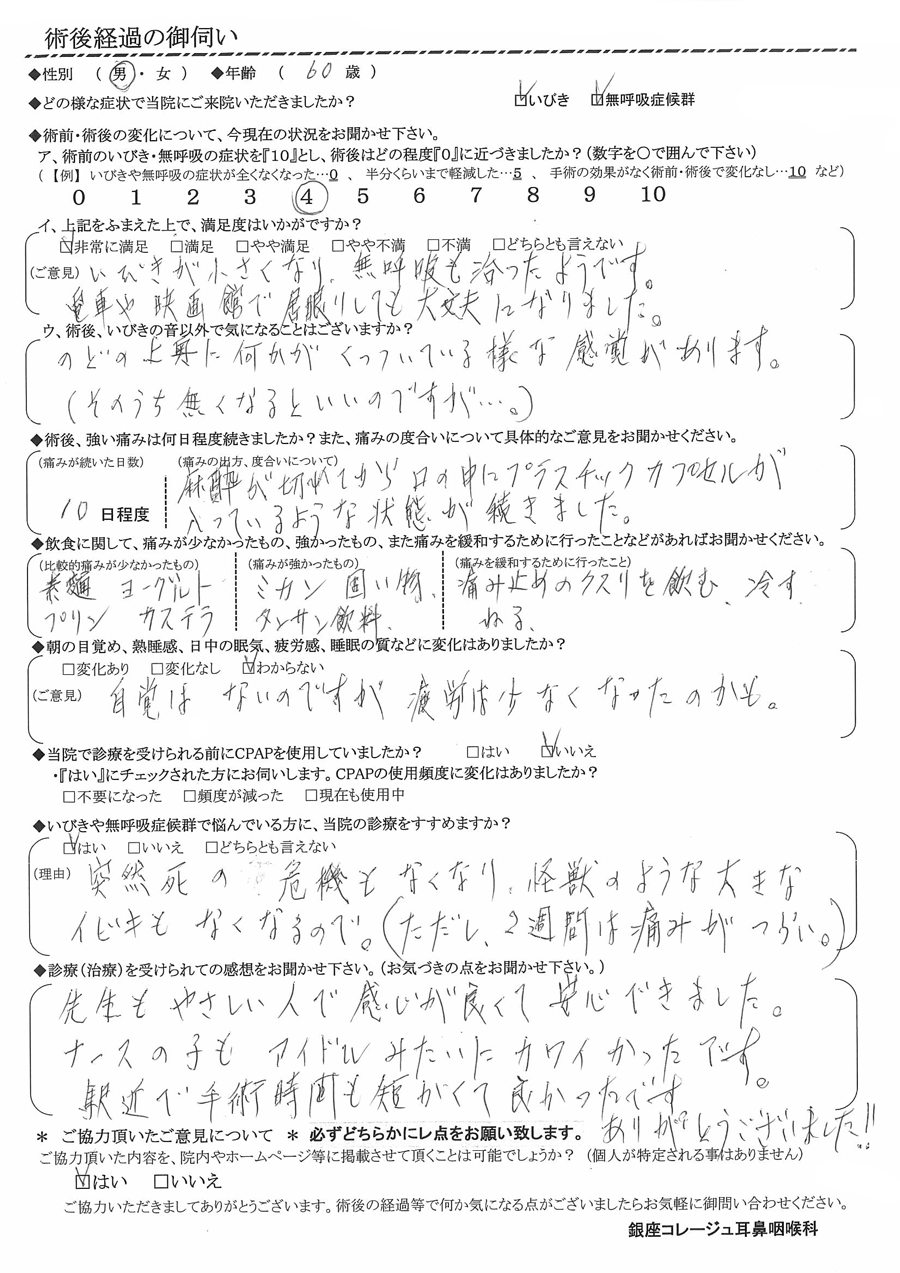 術後経過の御伺い
◆性別 ( 男 ・ 女 ) ◆年齢 ( 60 歳 )
◆どの様な症状で当院にご来院いただきましたか? ☑いびき ☑無呼吸症候群
◆術前・術後の変化について、今現在の状況をお聞かせ下さい。
ア、術前のいびき・無呼吸の症状を『10』とし、術後はどの程度『0』に近づきましたか?(数字を○で囲んで下さい)
(【例】いびきや無呼吸の症状が全くなくなった…0 、 半分くらいまで軽減した…5 、 手術の効果がなく術前・術後で変化なし…10 など)
0 1 2 3 4 5 6 7 8 9 10
イ、上記をふまえた上で、満足度はいかがですか?
☑非常に満足 □満足 □やや満足 □やや不満 □不満 □どちらとも言えない
(ご意見) いびきが小さくなり、無呼吸も治ったようです。
電車や映画館で居眠りしても大丈夫になりました。
ウ、術後、いびきの音以外で気になることはございますか?
のどの上奥に何かがくっついている様な感覚があります。
(そのうち無くなるといいのですが…。)
◆術後、強い痛みは何日程度続きましたか?また、痛みの度合いについて具体的なご意見をお聞かせください。
(痛みが続いた日数) (痛みの出方、度合いについて)
麻酔が切れてから口の中にプラスチックカプセルが
10 日程度 入っているような状態が続きました。
◆飲食に関して、痛みが少なかったもの、強かったもの、また痛みを緩和するために行ったことなどがあればお聞かせください。
(比較的痛みが少なかったもの) (痛みが強かったもの) (痛みを緩和するために行ったこと)
素麺 ヨーグルト ミカン 固い物、 痛み止めのクスリを飲む、冷す
プリン カステラ タンサン飲料、 ねる、
◆朝の目覚め、熟睡感、日中の眠気、疲労感、睡眠の質などに変化はありましたか?
□変化あり □変化なし ☑わからない
(ご意見) 自覚はないのですが疲労は少なくなったのかも。
◆当院で診療を受けられる前にCPAPを使用していましたか? □はい ☑いいえ
・『はい』にチェックされた方にお伺いします。CPAPの使用頻度に変化はありましたか?
□不要になった □頻度が減った □現在も使用中
◆いびきや無呼吸症候群で悩んでいる方に、当院の診療をすすめますか?
☑はい □いいえ □どちらとも言えない
(理由) 突然死の危機もなくなり、怪獣のような大きな
イビキもなくなるので。(ただし、2週間は痛みがつらい。)
◆診療(治療)を受けられての感想をお聞かせ下さい。(お気づきの点をお聞かせ下さい。)
先生もやさしい人で感じが良くて安心できました。
ナースの子もアイドルみたいにカワイかったです。
駅近で手術時間も短かくて良かったです
ありがとうございました!!
* ご協力頂いたご意見について * 必ずどちらかにレ点をお願い致します。
ご協力頂いた内容を、院内やホームページ等に掲載させて頂くことは可能でしょうか? (個人が特定される事はありません)
☑はい □いいえ
ご協力いただきましてありがとうございます。術後の経過等で何か気になる点がございましたらお気軽に御問い合わせください。
銀座コレージュ耳鼻咽喉科